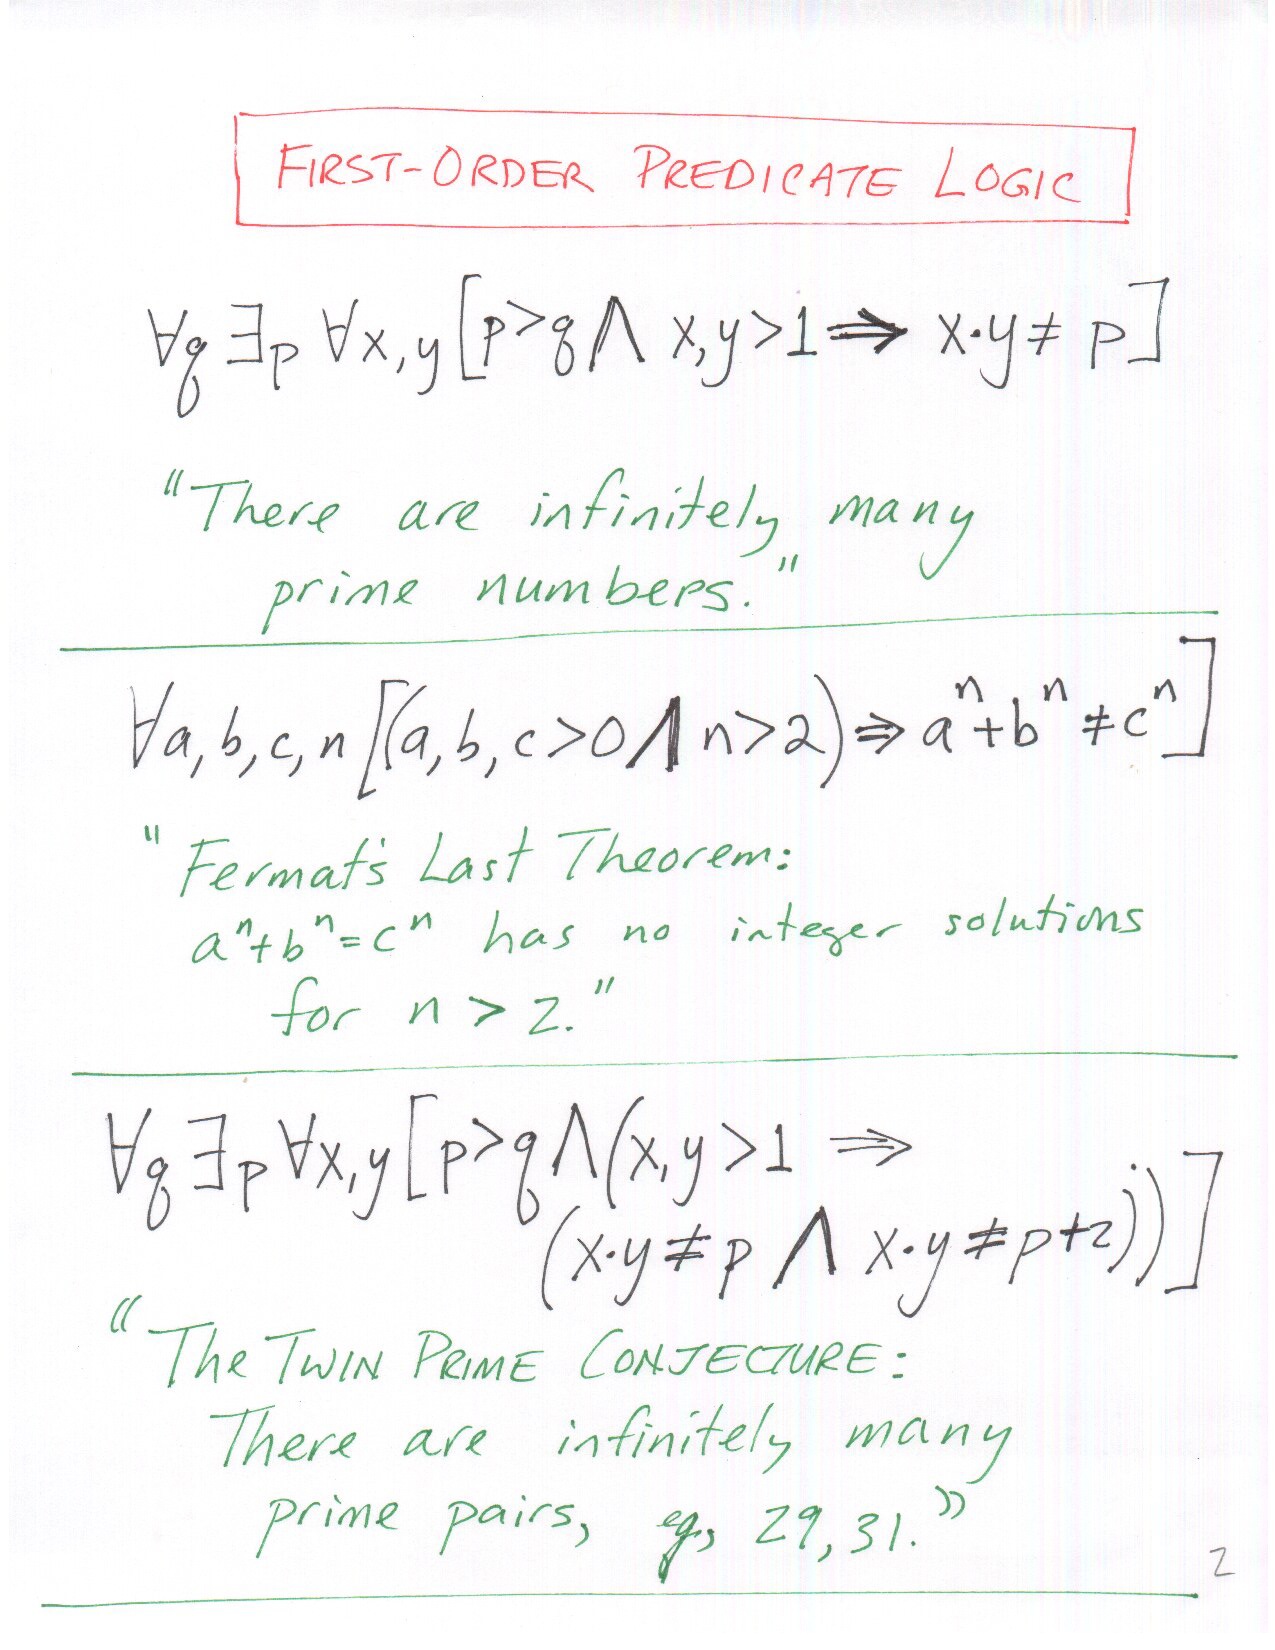 FIRST-ORDER PREDICATE LOGIC
∀q ∃p ∀x,y [p>q ∧ x,y>1 ⇒ x·y ≠ p]
"There are infinitely many
prime numbers."
∀a,b,c,n [(a,b,c>0 ∧ n>2) ⇒ aⁿ+bⁿ ≠ cⁿ]
"Fermat's Last Theorem:
aⁿ+bⁿ=cⁿ has no integer solutions
for n > 2."
∀q ∃p ∀x,y [p>q ∧ (x,y>1 ⇒
(x·y ≠ p ∧ x·y ≠ p+2))]
"The TWIN PRIME CONJECTURE:
There are infinitely many
prime pairs, eg., 29, 31."
2